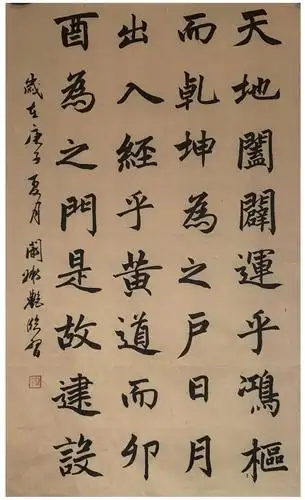 天地闔闢運乎鴻樞
而乾坤為之戶日月
出入經乎黃道而卯
酉為之門是故建設
歲在庚子夏月